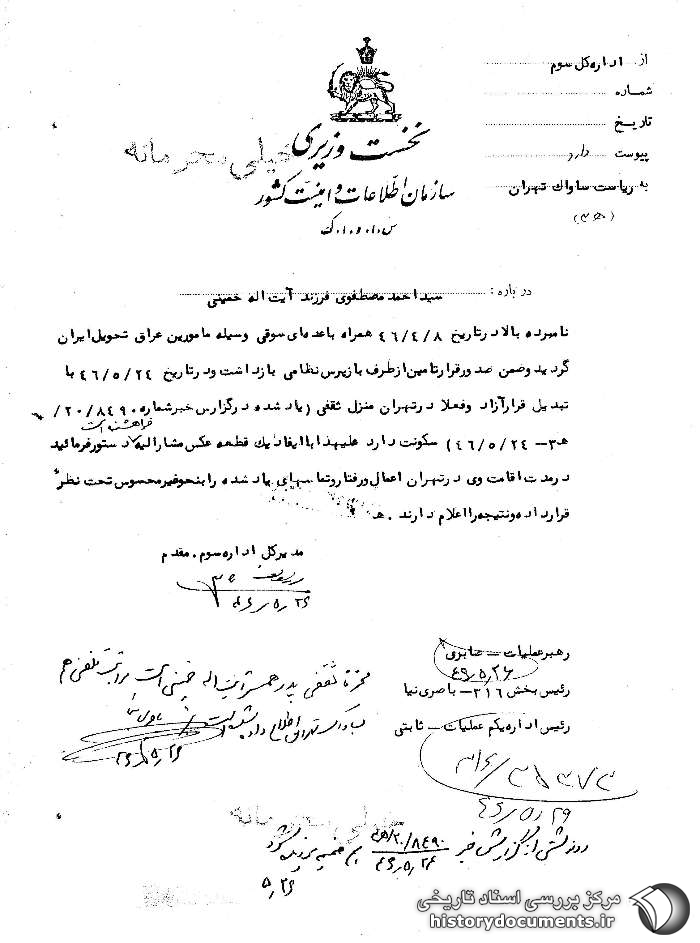 از اداره کل سوم
شماره
تاریخ
پیوست دارد
به ریاست ساواک تهران
(۳ه‍)
نخست وزیری
خیلی محرمانه
سازمان اطلاعات و امنیت کشور
س.ا.و.ا.ک
درباره: سیداحمد مصطفوی فرزند آیت اله خمینی
نامبرده بالا در تاریخ ۴۶/۴/۸ همراه باعده‌ای سوقی وسیله مامورین عراق تحویل ایران
گردید وضمن صدور قرار تامین از طرف بازپرس نظامی بازداشت ودر تاریخ ۴۶/۵/۲۴ با
تبدیل قرار آزاد وفعلا در تهران منزل ثقفی (یاد شده در گزارش خبر شماره ۲۰/۸۴۹۰/
ه‍۳ – ۴۶/۵/۲۴) سکونت دارد علیهذا با ایفاد یک قطعه عکس مشارالیه دستور فرمائید
در مدت اقامت وی در تهران اعمال ورفتار وتماسهای یاد شده را بنحو غیر محسوس تحت نظر
قرار داده ونتیجه را اعلام دارند. ه‍
مدیرکل اداره سوم. مقدم
۴۶/۵/۲۶
رهبر عملیات – صابری
۴۶/۵/۲۶
رئیس بخش ۳۱۶ – باصری نیا
رئیس اداره یکم عملیات – ثابتی
۳۱۶/۳۵۳۷۲
۴۶/۵/۲۹
ثقفی پدر همسر آیت اله خمینی است مراتب تلفنی هم
بساواک تهران اطلاع داده شده است
۴۶/۵/۲۶
خیلی محرمانه
رونوشتی از گزارش خبر ۲۰/۸۴۹۰/ه‍۳
۴۶/۵/۲۴
۵/۲۶
مرکز بررسی اسناد تاریخی
historydocuments.ir